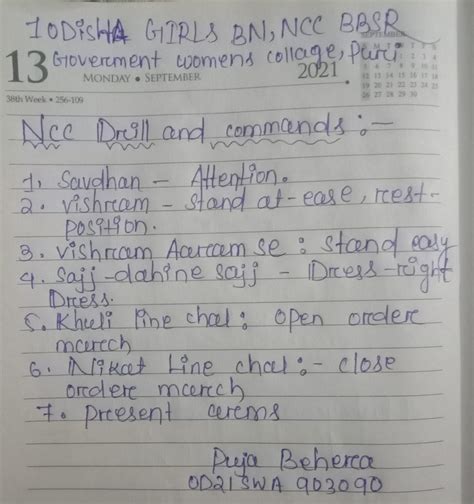 1 ODISHA GIRLS BN, NCC BBSR
Goverment womens collage, Puri
13 MONDAY • SEPTEMBER 2021
38th Week • 256-109
Ncc Drill and commands :-
1. Savdhan - Attention.
2. vishram - stand at-ease, rest-
position.
3. vishram Aaram se : stand easy
4. Sajj-dahine sajj - Dress-right
Dress.
5. Khuli line chal : open order
march
6. Nikat Line chal :- close
order march
7. present arms
Puja Behera
OD21SWA 903090